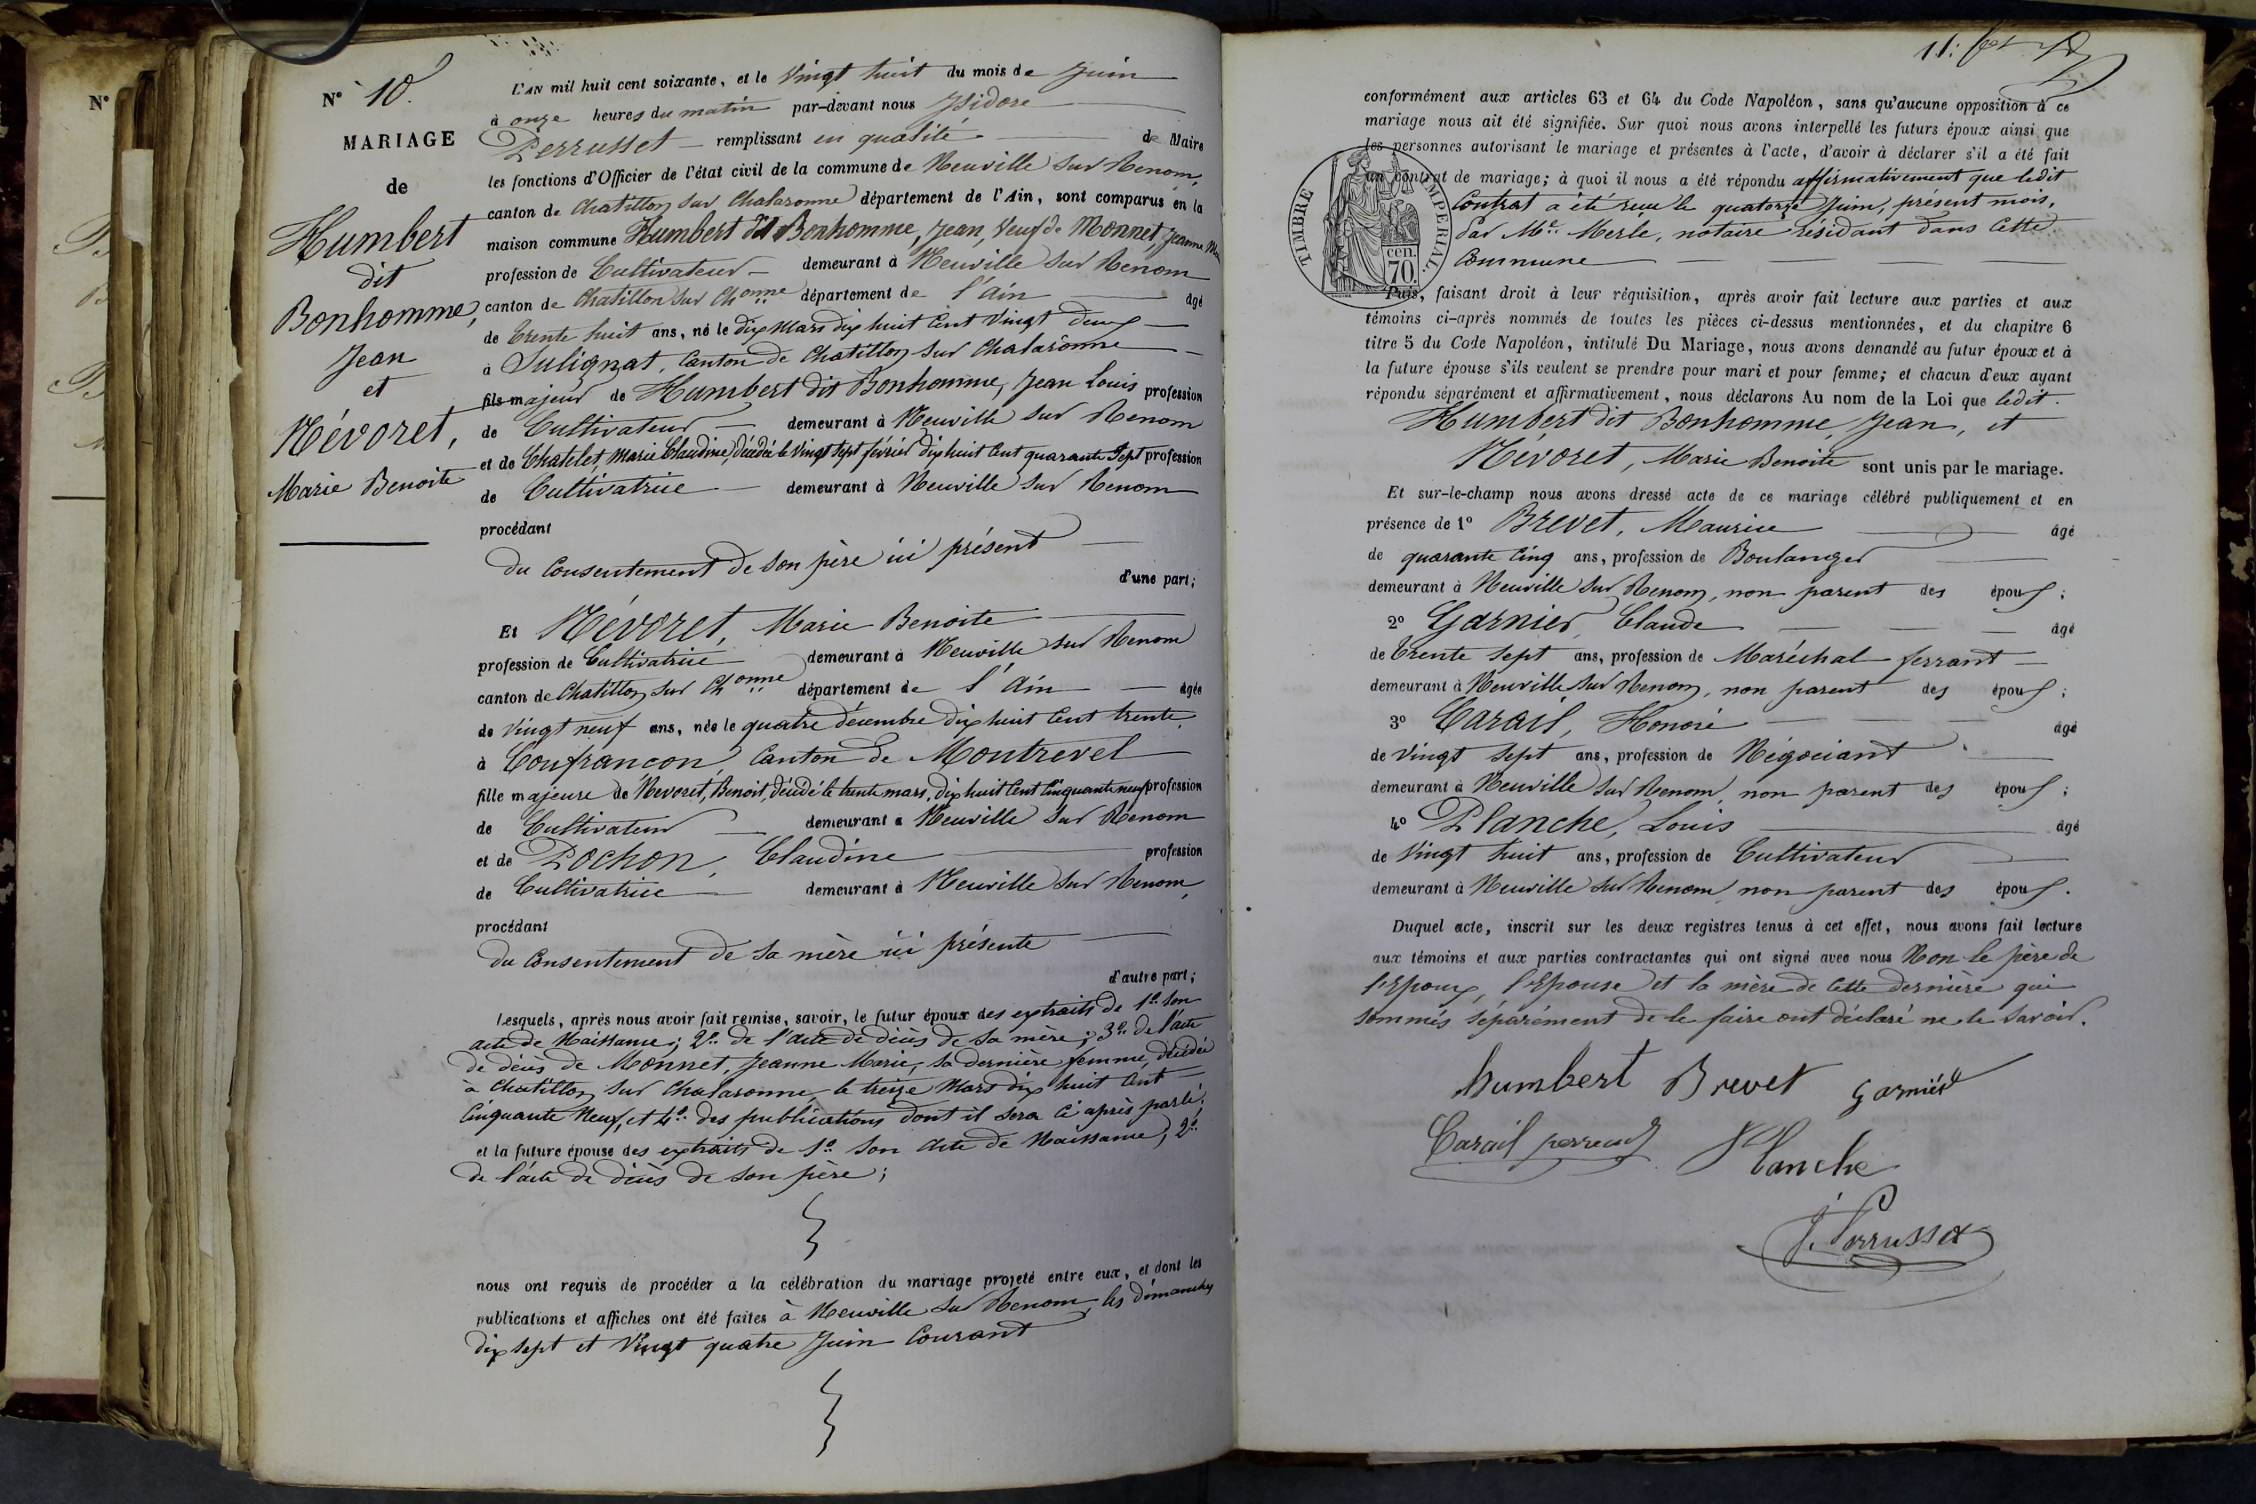 N°
N° 10.
MARIAGE
de
Humbert
dit
Bonhomme,
Jean
et
Névoret,
Marie Benoite
L'AN mil huit cent soixante, et le Vingt huit du mois de Juin
à onze heures du matin par-devant nous Isidore
Perrusset remplissant en qualité de Maire
les fonctions d'Officier de l'état civil de la commune de Neuville sur Renom,
canton de Chatillon sur Chalaronne département de l'Ain, sont comparus en la
maison commune Humbert dit Bonhomme, Jean, Veuf de Monnet, Jeanne
profession de Cultivateur demeurant à Neuville sur Renom
canton de Chatillon sur Chonne département de l'Ain âgé
de trente huit ans, né le dix Mars dix huit Cent Vingt deux
à Sulignat, Canton de Chatillon sur Chalaronne
fils majeur de Humbert dit Bonhomme, Jean Louis profession
de Cultivateur demeurant à Neuville sur Renom
et de Chatelet, Marie Claudine, décédée le Vingt sept février dix huit Cent quarante Sept profession
de Cultivatrice demeurant à Neuville sur Renom
procédant
du Consentement de son père ici présent
d'une part;
Et Névoret, Marie Benoite
profession de Cultivatrice demeurant à Neuville sur Renom
canton de Chatillon sur Chonne département de l'Ain âgée
de Vingt neuf ans, née le quatre décembre dix huit Cent trente
à Confrançon, Canton de Montrevel
fille majeure de Névoret, Benoit, décédé le trente mars, dix huit Cent Cinquante neuf profession
de Cultivateur demeurant à Neuville sur Renom
et de Pochon, Claudine profession
de Cultivatrice demeurant à Neuville sur Renom,
procédant
du Consentement de sa mère ici présente
d'autre part;
Lesquels, après nous avoir fait remise, savoir, le futur époux des extraits de 1° son
acte de Naissance; 2° de l'acte de décès de sa mère; 3° de l'acte
de décès de Monnet, Jeanne Marie, sa dernière femme, décédée
à Chatillon sur Chalaronne, le treize Mars dix huit Cent
Cinquante Neuf, et 4° des publications dont il sera ci après parlé;
et la future épouse des extraits de 1° son Acte de Naissance, 2°
de l'acte de décès de son père;
nous ont requis de procéder à la célébration du mariage projeté entre eux, et dont les
publications et affiches ont été faites à Neuville sur Renom, les dimanches
dix sept et Vingt quatre Juin Courant
11:
conformément aux articles 63 et 64 du Code Napoléon, sans qu'aucune opposition à ce
mariage nous ait été signifiée. Sur quoi nous avons interpellé les futurs époux ainsi que
les personnes autorisant le mariage et présentes à l'acte, d'avoir à déclarer s'il a été fait
un contrat de mariage; à quoi il nous a été répondu affirmativement que ledit
Contrat a été reçu le quatorze Juin, présent mois,
par Me Merle, notaire résidant dans cette
Commune
TIMBRE IMPERIAL.
cen.
70.
Puis, faisant droit à leur réquisition, après avoir fait lecture aux parties et aux
témoins ci-après nommés de toutes les pièces ci-dessus mentionnées, et du chapitre 6
titre 5 du Code Napoléon, intitulé Du Mariage, nous avons demandé au futur époux et à
la future épouse s'ils veulent se prendre pour mari et pour femme; et chacun d'eux ayant
répondu séparément et affirmativement, nous déclarons Au nom de la Loi que ledit
Humbert dit Bonhomme, Jean, et
Névoret, Marie Benoite sont unis par le mariage.
Et sur-le-champ nous avons dressé acte de ce mariage célébré publiquement et en
présence de 1° Brevet, Maurice âgé
de quarante Cinq ans, profession de Boulanger
demeurant à Neuville sur Renom, non parent des époux;
2° Garnier, Claude âgé
de trente sept ans, profession de Maréchal ferrant
demeurant à Neuville sur Renom, non parent des époux;
3° Carail, Honoré âgé
de Vingt sept ans, profession de Négociant
demeurant à Neuville sur Renom, non parent des époux;
4° Planche, Louis âgé
de Vingt huit ans, profession de Cultivateur
demeurant à Neuville sur Renom, non parent des époux.
Duquel acte, inscrit sur les deux registres tenus à cet effet, nous avons fait lecture
aux témoins et aux parties contractantes qui ont signé avec nous Non le père de
l'Epoux, l'Epouse et la mère de cette dernière qui
sommés séparément de le faire ont déclaré ne le savoir.
humbert Brevet garnier
Carail perreaud Planche
J. Perrusset